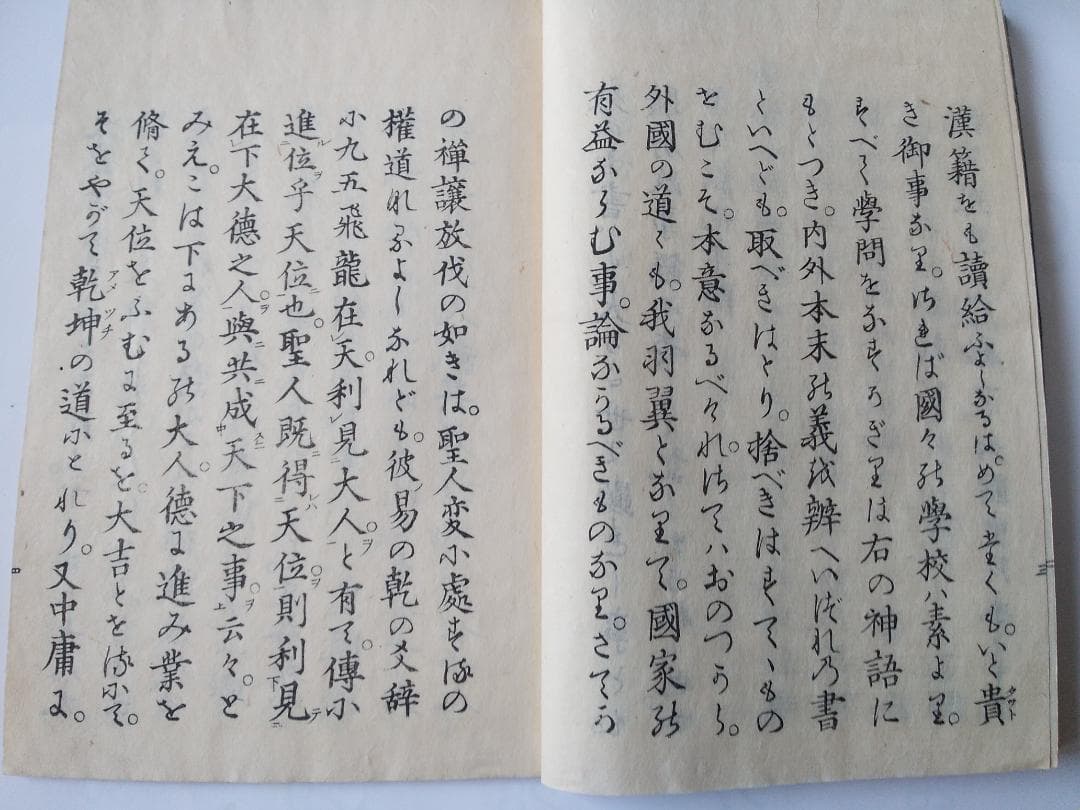 漢籍をも讀給ふよしなるは。めでたくも。いと貴タフト
き御事なり。されば國々の學校ハ素より。
すべて學問をなすかぎりは右の神語に
もとつき。内外本末の義を辨へいづれの書
といへども。取べきはとり。捨べきはすてゝもの
をむこそ。本意なるべけれ。さてハおのつから。
外國の道〻も。我羽翼となりて。國家の
有益ならむ事。論なかるべきものなり。さてか
の禅讓放伐の如きは。聖人変に處するの
權道なるよしなれども。彼易の乾の爻辞
に九五飛龍在天。利見大人。と有て。傳に
進位乎天位也。聖人既得天位。則利見
在下大德之人。與共成天下之事。云々。と
みえ。こは下にある大人。德に進み業を
脩て。天位をふむに至るを。大吉とをるにて。
そをやがて乾坤アメツチの道にとれり。又中庸に。
三